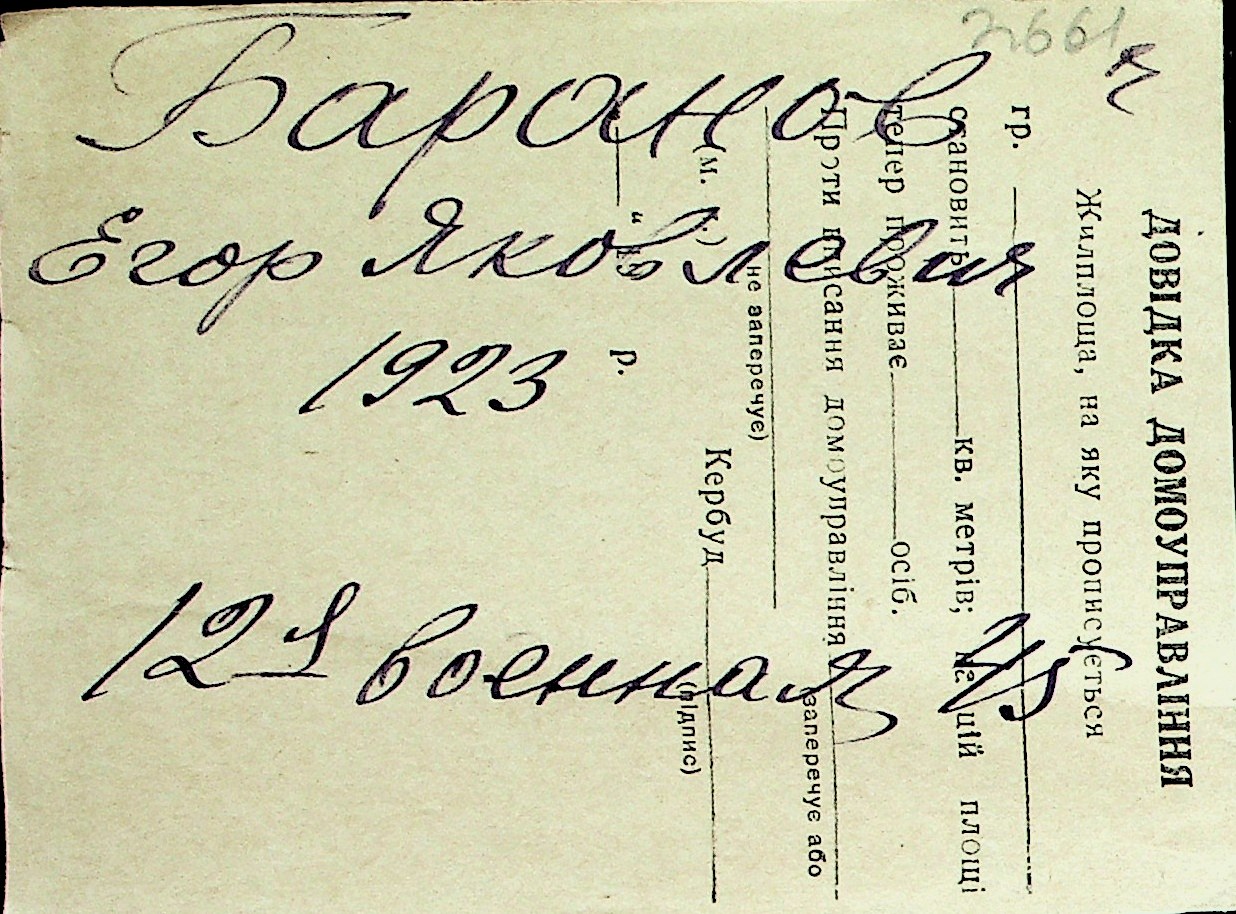 2661
ч
Баранов
Егор Яковлевич
1923
12я военная 4/5
ДОВІДКА ДОМОУПРАВЛІННЯ
Жилплоща, на яку прописується
гр.
становить кв. метрів; на цій площі
тепер проживає осіб.
Проти прописання домоуправління
заперечує або
не заперечує)
(м. п.)
Кербуд
(підпис)
" р.